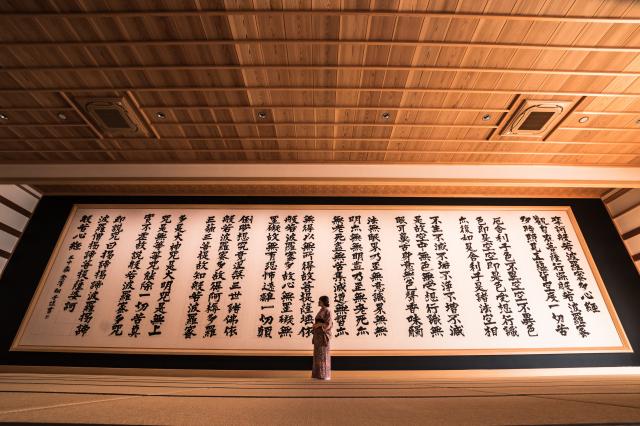 摩訶般若波羅蜜多心經
觀自在菩薩行深般若波羅蜜
多時照見五蘊皆空度一切苦
厄舎利子色不異空空不異色
色即是空空即是色受想行識
亦復如是舎利子是諸法空相
不生不滅不垢不淨不增不減
是故空中無色無受想行識無
眼耳鼻舌身意無色聲香味觸
法無眼界乃至無意識界無無
明亦無無明盡乃至無老死亦
無老死盡無苦集滅道無智亦
無得以無所得故菩提薩埵依
般若波羅蜜多故心無罣礙無
罣礙故無有恐怖遠離一切顛
倒夢想究竟涅槃三世諸佛依
般若波羅蜜多故得阿耨多羅
三藐三菩提故知般若波羅蜜
多是大神咒是大明咒是無上
咒是無等等咒能除一切苦真
實不虚故説般若波羅蜜多咒
即説咒曰羯諦羯諦波羅羯諦
波羅僧羯諦菩提薩婆訶
般若心經